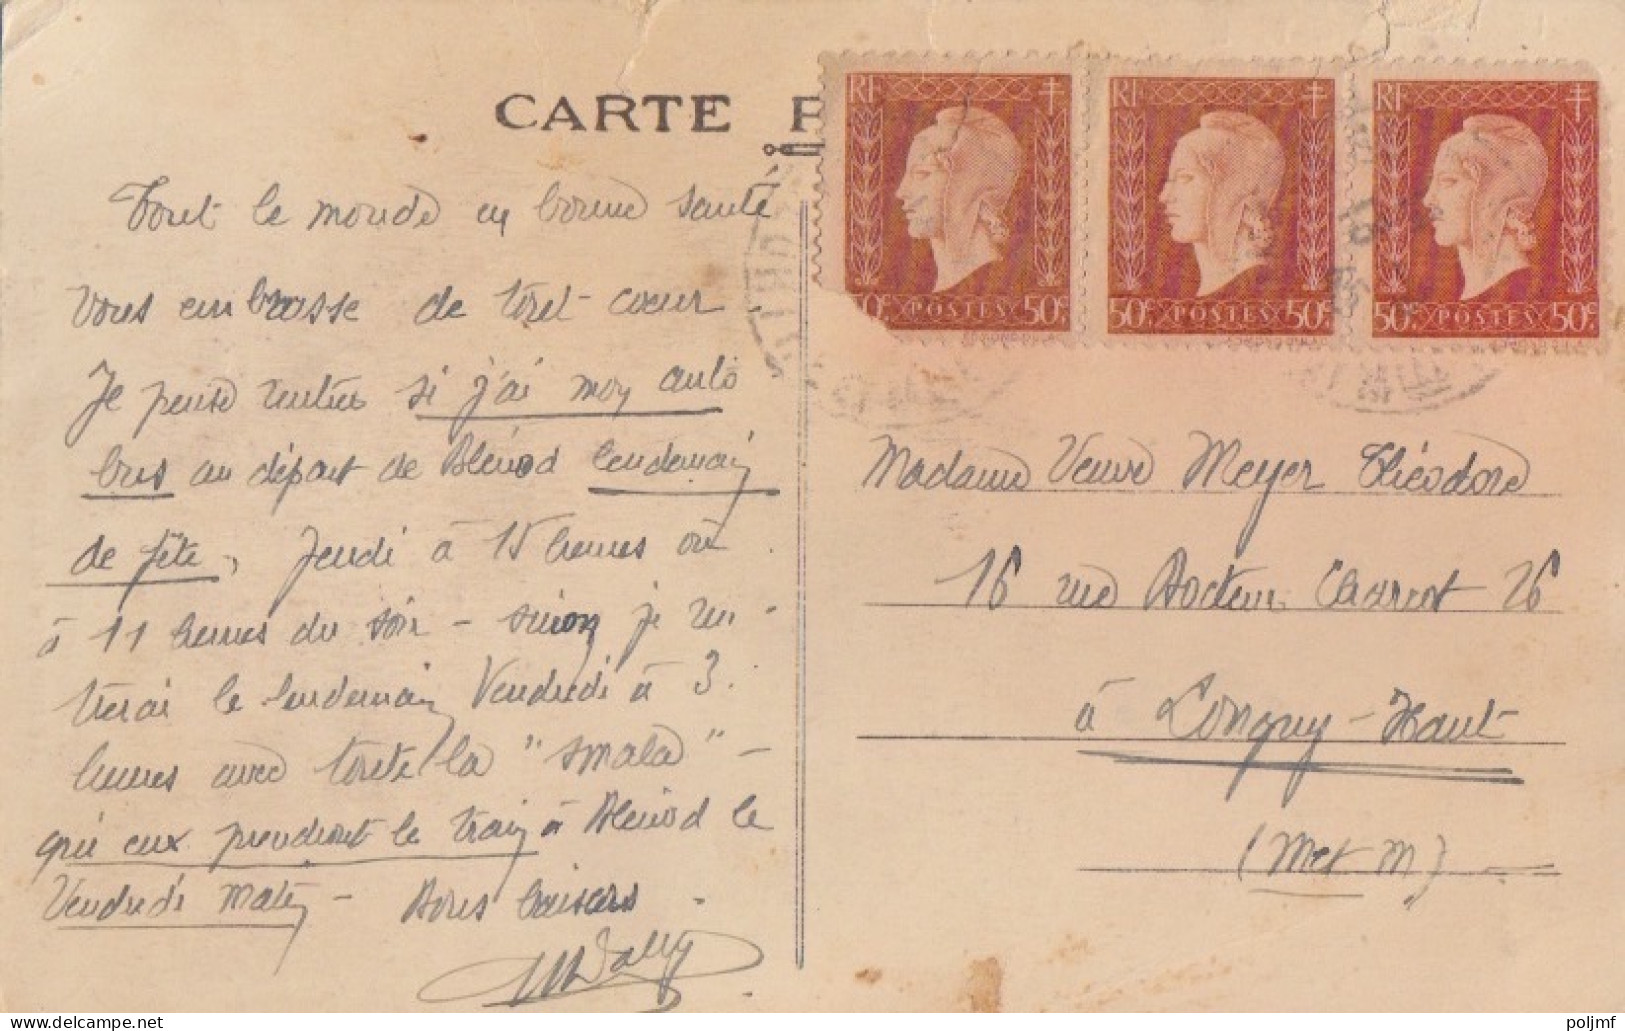 CARTE P
Tout le monde en bonne santé
Vous embrasse de tout coeur -
Je pense rentrer si j'ai mon auto
bus au départ de Blénod lendemain
de fête, Jeudi à 15 heures ou
à 11 heures du soir - sinon je ren-
trerai le lendemain Vendredi à 3
heures avec toute la "smala" -
qui eux prendront le train à Blénod le
Vendredi matin - Bons baisers -
RF
50c POSTES 50c
RF
50c POSTES 50c
RF
50c POSTES 50c
Madame Veuve Meyer Théodore
16 rue Docteur Charcot 26
à Longwy-Haut
(M et M)
Delcampe.net
poljmf